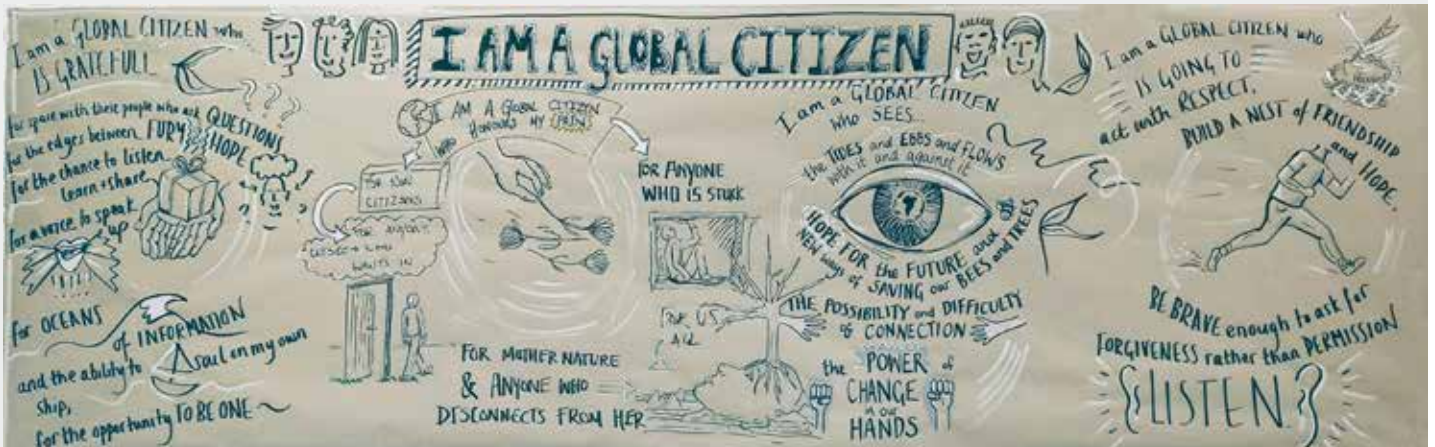 I AM A GLOBAL CITIZEN
I am a GLOBAL CITIZEN who
IS GRATEFULL
for space with these people who ask QUESTIONS
for the edges between FURY & HOPE
for the chance to listen
learn + share
for a voice to speak
up
for OCEANS
of INFORMATION
and the ability to sail on my own
ship,
for the opportunity TO BE ONE ~
I AM A GLOBAL CITIZEN
WHO HONOURS MY
CITIZENS
WANTS IN
FOR ANYONE
WHO IS STUCK
FOR US
ALL
FOR MOTHER NATURE
& ANYONE WHO
DISCONNECTS FROM HER
I am a GLOBAL CITIZEN
who SEES...
the TIDES and EBBS and FLOWS
with it and against it
HOPE FOR the FUTURE and of
NEW ways of SAVING our BEES and TREES
THE POSSIBILITY and DIFFICULTY
of CONNECTION
the POWER of
CHANGE
in our
HANDS
I am a GLOBAL CITIZEN who
IS GOING TO
act with RESPECT.
BUILD A NEST of FRIENDSHIP
and HOPE.
BE BRAVE enough to ask for
FORGIVENESS rather than PERMISSION
LISTEN